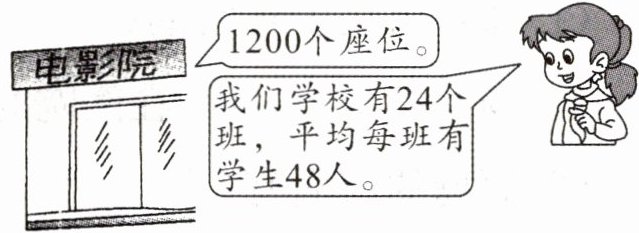 电影院
1200个座位。
我们学校有24个
班，平均每班有
学生48人。